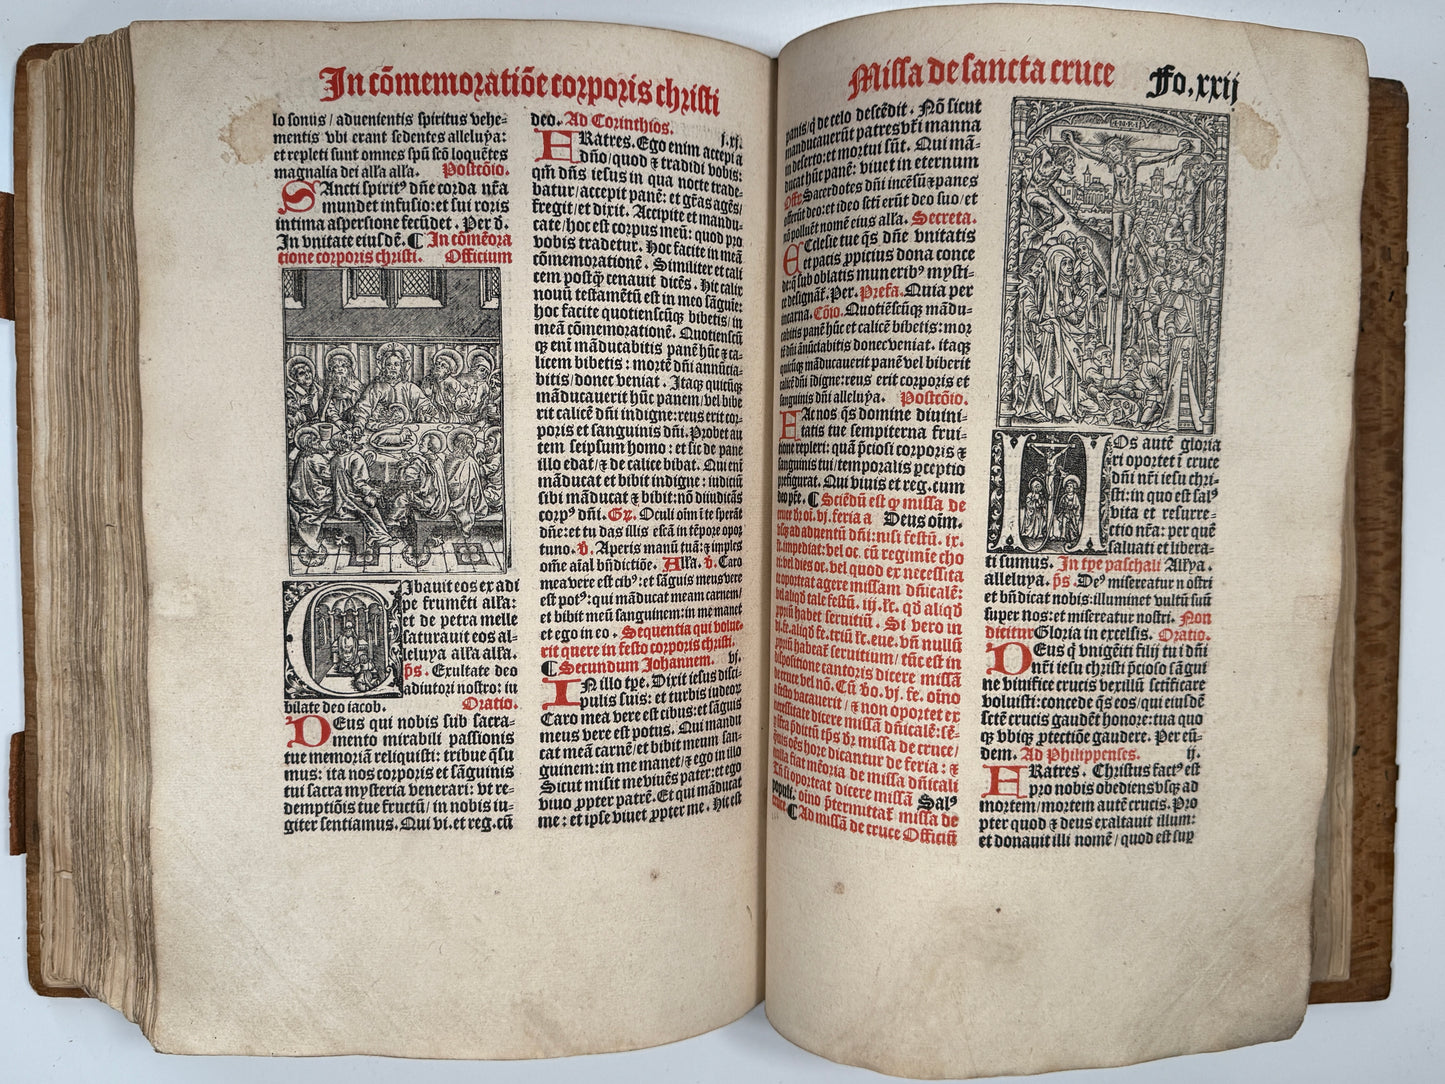 In cōmemoratiōe corporis christi
lo sonus/ aduenientis spiritus vehe-
mentis vbi erant sedentes alleluya:
et repleti sunt omnes spū scō loquētes
magnalia dei alła alła. Postcōio.
SAncti spiritꝰ dñe corda nr̄a
mundet infusio: et sui roris
intima aspersione fecūdet. Per d.
In vnitate eiusdē. ¶ In cōmēora
tione corporis christi. Officium
CIbauit eos ex adi
pe frumēti alła:
et de petra melle
saturauit eos al-
leluya alła alła.
p̄s. Exultate deo
adiutori nostro: iu
bilate deo iacob. Oratio.
DEus qui nobis sub sacra-
mento mirabili passionis
tue memoriā reliquisti: tribue q̄su
mus: ita nos corporis et sāguinis
tui sacra mysteria venerari: vt re-
demptiōis tue fructū/ in nobis iu-
giter sentiamus. Qui vi. et reg. cū
deo. Ad Corinthios. j. xj.
FRatres. Ego enim accepi a
dño/ quod ⁊ tradidi vobis:
qm̄ dñs iesus in qua nocte trade-
batur/ accepit panē: et gr̄as agēs/
fregit/ et dixit. Accipite et mandu-
cate/ hoc est corpus meū: quod pro
vobis tradetur. Hoc facite in meā
cōmemorationē. Similiter et cali
cem postq̄ cenauit dicēs. Hic calix
nouū testamētū est in meo sāguine:
hoc facite quotienscūqꝫ bibetis/ in
meā cōmemorationē. Quotienscū
qꝫ enī māducabitis panē hūc ⁊ ca-
licem bibetis: mortē dñi annūcia-
bitis/ donec veniat. Itaqꝫ quicūqꝫ
māducauerit hūc panem/ vel bibe
rit calicē dñi indigne: reus erit cor-
poris et sanguinis dñi. Probet au
tem seipsum homo: et sic de pane
illo edat/ ⁊ de calice bibat. Qui enī
māducat et bibit indigne: iudiciū
sibi māducat ⁊ bibit: nō diiudicās
corpꝰ dñi. Gr̄. Oculi oīm ī te sperāt
dñe: et tu das illis escā in tēpore opor
tuno. v̄. Aperis manū tuā: ⁊ imples
om̄e aīal bn̄dictiōe. Alła. v̄. Caro
mea vere est cibꝰ: et sāguis meus vere
est potꝰ: qui māducat meam carnem/
et bibit meū sanguinem: in me manet
et ego in eo. Sequentia qui volue-
rit quere in festo corporis christi.
¶ Secundum Johannem. vj.
IN illo tp̄e. Dixit iesus disci-
pulis suis: et turbis iudeoꝝ
Caro mea vere est cibus: et sāguis
meus vere est potus. Qui mandu
cat meā carnē/ et bibit meum san-
guinem: in me manet/ ⁊ ego in illo
Sicut misit me viuēs pater: et ego
viuo ꝓpter patrē. Et qui māducat
me: et ipse viuet ꝓpter me. Hic est
Missa de sancta cruce Fo. xxij
panis/ q̄ de celo descēdit. Nō sicut
manducauerūt patres vr̄i manna
in deserto: et mortui sūt. Qui mā-
ducat hūc panē: viuet in eternum
Offꝫ Sacerdotes dñi incēsū ⁊ panes
offerūt deo: et ideo scti erūt deo suo/ et
nō polluēt nomē eius alła. Secreta.
ECclesie tue q̄s dñe vnitatis
et pacis ꝓpicius dona conce
de: q̄ sub oblatis muneribꝰ mysti-
ce designāt. Per. Prefa. Quia per
incarna. Cōio. Quotiēscūqꝫ mādu-
cabitis panē hūc et calicē bibetis: mor
tē dñi ānūciabitis donec veniat. itaqꝫ
quicūqꝫ māducauerit panē vel biberit
calicē dñi īdigne: reus erit corporis et
sanguinis dñi alleluya. Postcōio.
FAc nos q̄s domine diuini-
tatis tue sempiterna frui-
tione repleri: quā p̄ciosi corporis ⁊
sanguinis tui/ temporalis ꝑceptio
prefigurat. Qui viuis et reg. cum
deo pr̄e. ¶ Sciēdū est qꝫ missa de
cruce br̄ oī. vj. feria a Deus oīm.
vsqꝫ ad aduentū dñi: nisi festū. ix.
lc̄. impediat: vel oc. cū regimīe cho
ri: vel dies oc. vel quod ex necessita
te oporteat agere missam dñicalē:
vel aliqd̄ tale festū. iij. lc̄. qd̄ aliqd̄
ꝓpriū habet seruitiū. Si vero in
vj. fe. aliqd̄ fe. triū lc̄. eue. vn̄ nullū
ꝓpriū habeat seruitium: tūc est in
dispositione cantoris dicere missā
de cruce vel nō. Cū v̄o. vj. fe. oīno
a festo vacauerit/ ⁊ non oportet ex
necessitate dicere missā dñicalē: sē-
ꝑ īfra p̄dictū tp̄s dr̄ missa de cruce/
quis oēs hore dicantur de feria: ⁊
nulla fiat mēoria de missa dñicali
Tn̄ si oporteat dicere missam Salꝰ
populi. oīno p̄termittat̄ missa de
cruce. ¶ Ad missā de cruce Officiū
I.N.R.I
NOs autē gloria
ri oportet ī cruce
dñi nr̄i iesu chri-
sti: in quo est salꝰ
vita et resurre-
ctio nr̄a: per quē
saluati et libera-
ti sumus. In tp̄e paschali Allꝫya.
alleluya. p̄s. Deꝰ misereatur nostri
et bn̄dicat nobis: illuminet vultū suū
super nos: et misereatur nostri. Non
dicitur Gloria in excelsis. Oratio.
DEus q̄ vnigēiti filij tui dñi
nr̄i iesu christi p̄cioso sāgui
ne viuifice crucis vexillū sctificare
voluisti: concede q̄s eos/ qui eiusdē
sctē crucis gaudēt honore: tua quo
qꝫ vbiqꝫ ꝓtectiōe gaudere. Per eū-
dem. Ad Philippenses. ij.
FRatres. Christus factꝰ est
pro nobis obediens vsqꝫ ad
mortem/ mortem autē crucis. Pro
pter quod ⁊ deus exaltauit illum:
et donauit illi nomē/ quod est suꝑ